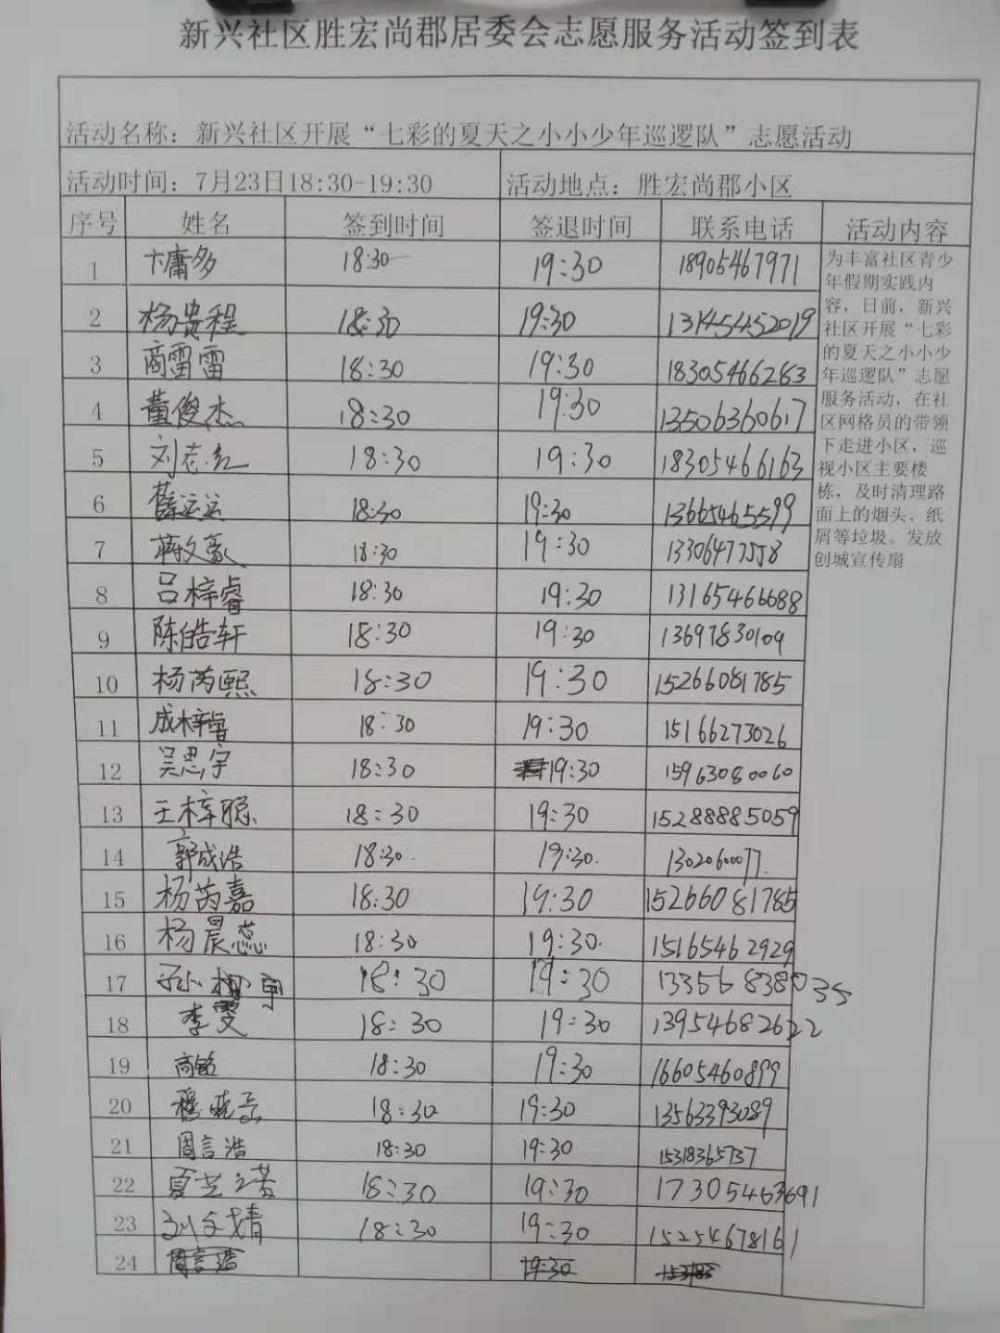 新兴社区胜宏尚郡居委会志愿服务活动签到表
活动名称：新兴社区开展“七彩的夏天之小小少年巡逻队”志愿活动
活动时间：7月23日18:30-19:30 活动地点：胜宏尚郡小区
序号 姓名 签到时间 签退时间 联系电话 活动内容
1 卞庸多 18:30 19:30 18905467971
2 杨贵程 18:30 19:30 13145452019
3 商雷雷 18:30 19:30 18305466283
4 董俊杰 18:30 19:30 13506360617
5 刘志红 18:30 19:30 18305466163
6 薛运运 18:30 19:30 13665465599
7 蒋文豪 18:30 19:30 13306477558
8 吕梓睿 18:30 19:30 13165466688
9 陈皓轩 18:30 19:30 13697830109
10 杨芮熙 18:30 19:30 15266081785
11 成梓睿 18:30 19:30 15166273026
12 吴思宇 18:30 19:30 15963080060
13 王梓聪 18:30 19:30 15288885059
14 郭成浩 18:30 19:30
15 杨芮嘉 18:30 19:30 15266081785
16 杨晨蕊 18:30 19:30 15165462929
17 18:30 19:30
18 李雯 18:30 19:30 13954682622
19 高铭 18:30 19:30 16605460899
20 18:30 19:30 13563393089
21 周言浩 18:30 19:30 15318365737
22 夏芷若 18:30 19:30 17305463691
23 18:30 19:30 15254678161
24 周言浩 19:30
为丰富社区青少
年假期实践内
容，日前，新兴
社区开展“七彩
的夏天之小小少
年巡逻队”志愿
服务活动，在社
区网格员的带领
下走进小区，巡
视小区主要楼
栋，及时清理路
面上的烟头、纸
屑等垃圾。发放
创城宣传扇